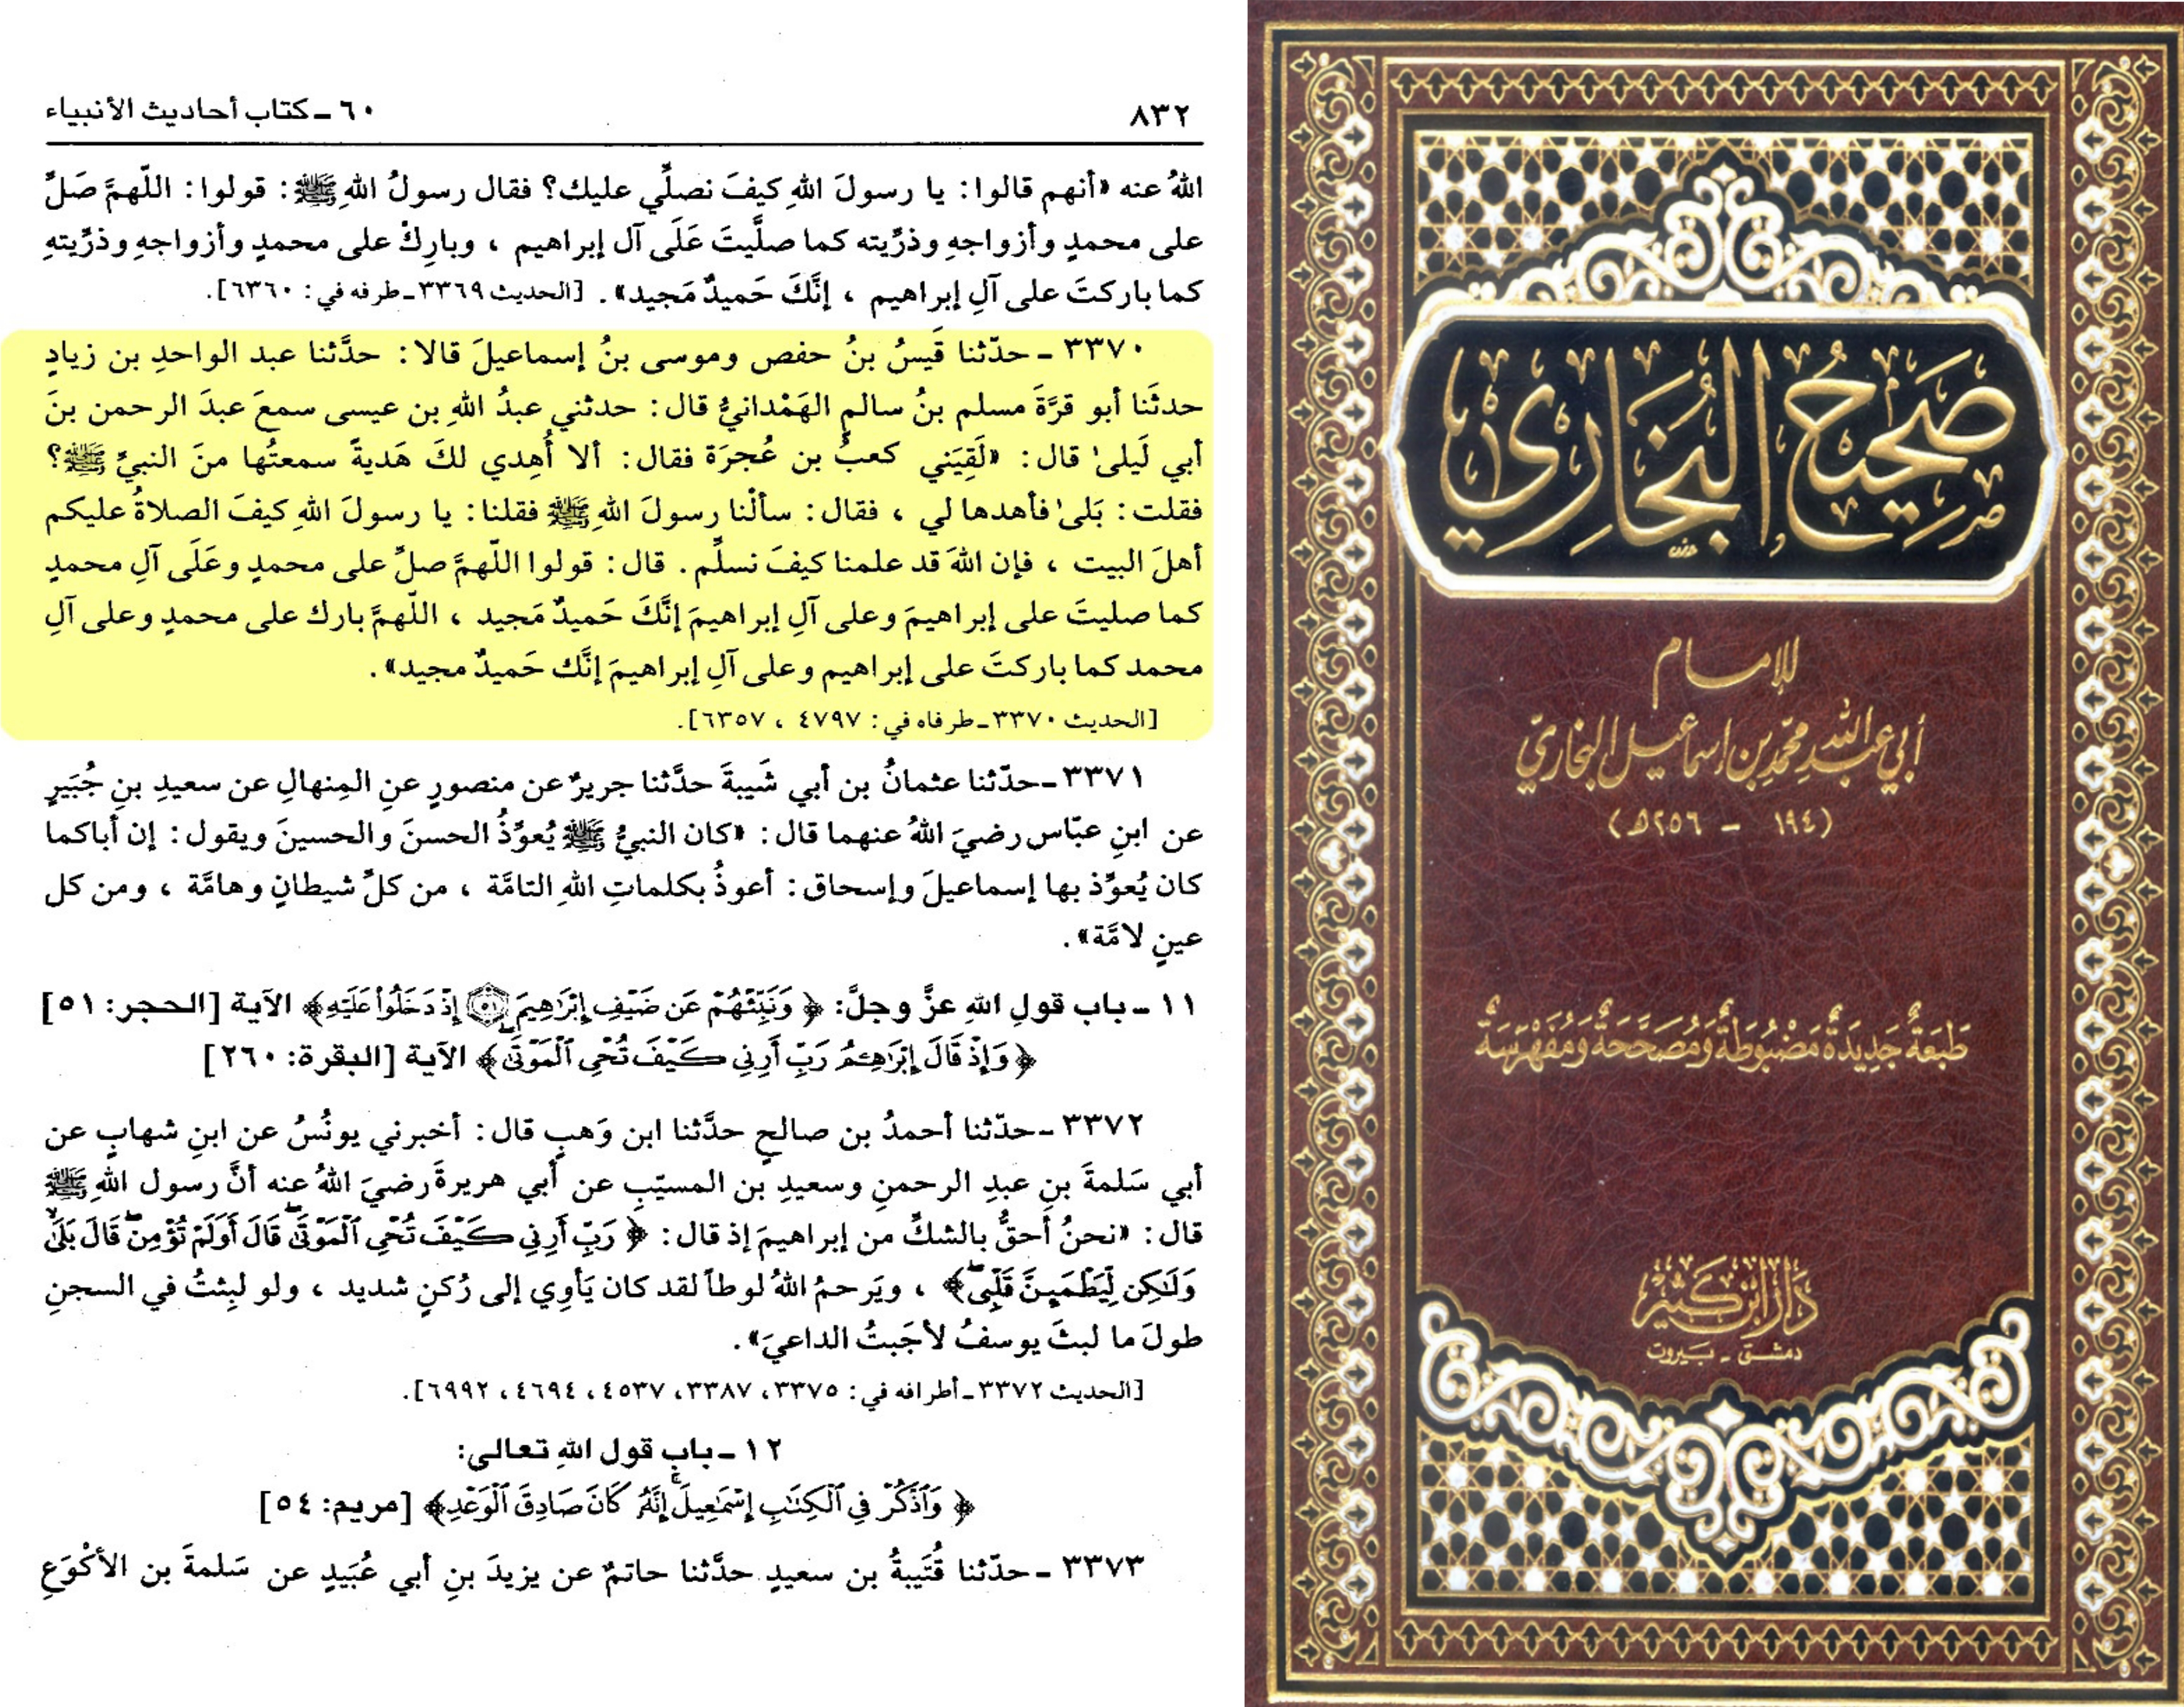 ٨٣٢
٦٠ ـ كتاب أحاديث الأنبياء
اللهُ عنه «أنهم قالوا: يا رسولَ اللهِ كيفَ نصلِّي عليك؟ فقال رسولُ اللهِ ﷺ: قولوا: اللّهمَّ صَلِّ
على محمدٍ وأزواجهِ وذرِّيته كما صلَّيتَ عَلَى آل إبراهيم ، وبارِكْ على محمدٍ وأزواجهِ وذرِّيتهِ
كما باركتَ على آلِ إبراهيم ، إنَّكَ حَميدٌ مَجيد». [الحديث ٣٣٦٩ ـ طرفه في: ٦٣٦٠].
٣٣٧٠ ـ حدّثنا قَيسُ بنُ حفص وموسى بنُ إسماعيلَ قالا: حدَّثنا عبد الواحدِ بن زيادٍ
حدثَنا أبو قرَّةَ مسلم بنُ سالمٍ الهَمْدانيُّ قال: حدثني عبدُ اللهِ بن عيسى سمعَ عبدَ الرحمن بنَ
أبي لَيلىٰ قال: «لَقِيَني كعبُ بن عُجرَة فقال: ألا أُهِدي لكَ هَديةً سمعتُها منَ النبيِّ ﷺ؟
فقلت: بَلىٰ فأهدها لي ، فقال: سألْنا رسولَ اللهِ ﷺ فقلنا: يا رسولَ اللهِ كيفَ الصلاةُ عليكم
أهلَ البيت ، فإن اللهَ قد علمنا كيفَ نسلِّم. قال: قولوا اللّهمَّ صلِّ على محمدٍ وعَلَى آلِ محمدٍ
كما صليتَ على إبراهيمَ وعلى آلِ إبراهيمَ إنَّكَ حَميدٌ مَجيد ، اللّهمَّ بارك على محمدٍ وعلى آلِ
محمد كما باركتَ على إبراهيم وعلى آلِ إبراهيمَ إنَّك حَميدٌ مجيد».
[الحديث ٣٣٧٠ ـ طرفاه في: ٤٧٩٧ ، ٦٣٥٧].
٣٣٧١ ـ حدّثنا عثمانُ بن أبي شَيبةَ حدَّثنا جريرٌ عن منصورٍ عنِ المِنهالِ عن سعيدِ بنِ جُبَيرٍ
عن ابنِ عبّاس رضيَ اللهُ عنهما قال: «كان النبيُّ ﷺ يُعوِّذُ الحسنَ والحسينَ ويقول: إن أباكما
كان يُعوِّذ بها إسماعيلَ وإسحاق: أعوذُ بكلماتِ اللهِ التامَّة ، من كلِّ شيطانٍ وهامَّة ، ومن كل
عينٍ لامَّة».
١١ ـ باب قولِ اللهِ عزَّ وجلَّ: ﴿ وَنَبِّئْهُمْ عَن ضَيْفِ إِبْرَٰهِيمَ ۝٥١ إِذْ دَخَلُوا۟ عَلَيْهِ﴾ الآية [الحجر: ٥١]
﴿وَإِذْ قَالَ إِبْرَٰهِـۧمُ رَبِّ أَرِنِى كَيْفَ تُحْىِ ٱلْمَوْتَىٰ﴾ الآية [البقرة: ٢٦٠]
٣٣٧٢ ـ حدّثنا أحمدُ بن صالحٍ حدَّثنا ابن وَهبٍ قال: أخبرني يونُسُ عن ابنِ شهابٍ عن
أبي سَلمةَ بنِ عبدِ الرحمنِ وسعيدِ بن المسيّبِ عن أبي هريرةَ رضيَ اللهُ عنه أنَّ رسول اللهِ ﷺ
قال: «نحنُ أحقُّ بالشكِّ من إبراهيمَ إذ قال: ﴿ رَبِّ أَرِنِى كَيْفَ تُحْىِ ٱلْمَوْتَىٰ قَالَ أَوَلَمْ تُؤْمِن قَالَ بَلَىٰ
وَلَـٰكِن لِّيَطْمَئِنَّ قَلْبِى﴾ ، ويَرحمُ اللهُ لوطاً لقد كان يَأوِي إلى رُكنٍ شديد ، ولو لبِثتُ في السجنِ
طولَ ما لبثَ يوسفُ لأجَبتُ الداعيَ».
[الحديث ٣٣٧٢ ـ أطرافه في: ٣٣٧٥، ٣٣٨٧، ٤٥٣٧، ٤٦٩٤، ٦٩٩٢].
١٢ ـ باب قول اللهِ تعالى:
﴿ وَٱذْكُرْ فِى ٱلْكِتَـٰبِ إِسْمَـٰعِيلَ إِنَّهُۥ كَانَ صَادِقَ ٱلْوَعْدِ﴾ [مريم: ٥٤]
٣٣٧٣ ـ حدّثنا قُتَيبةُ بن سعيدٍ حدَّثنا حاتمٌ عن يزيدَ بنِ أبي عُبَيدٍ عن سَلمةَ بن الأكْوَعِ
صَحِيحُ البُخَارِي
للإمام
أبي عبد الله محمّد بن إسماعيل البخاريّ
(١٩٤ - ٢٥٦هـ)
طَبعَةٌ جَدِيدَةٌ مَضْبُوطَةٌ وَمُصَحَّحَةٌ وَمُفَهْرَسَةٌ
دَارُ ابْن كَثِير
دمشق - بيروت